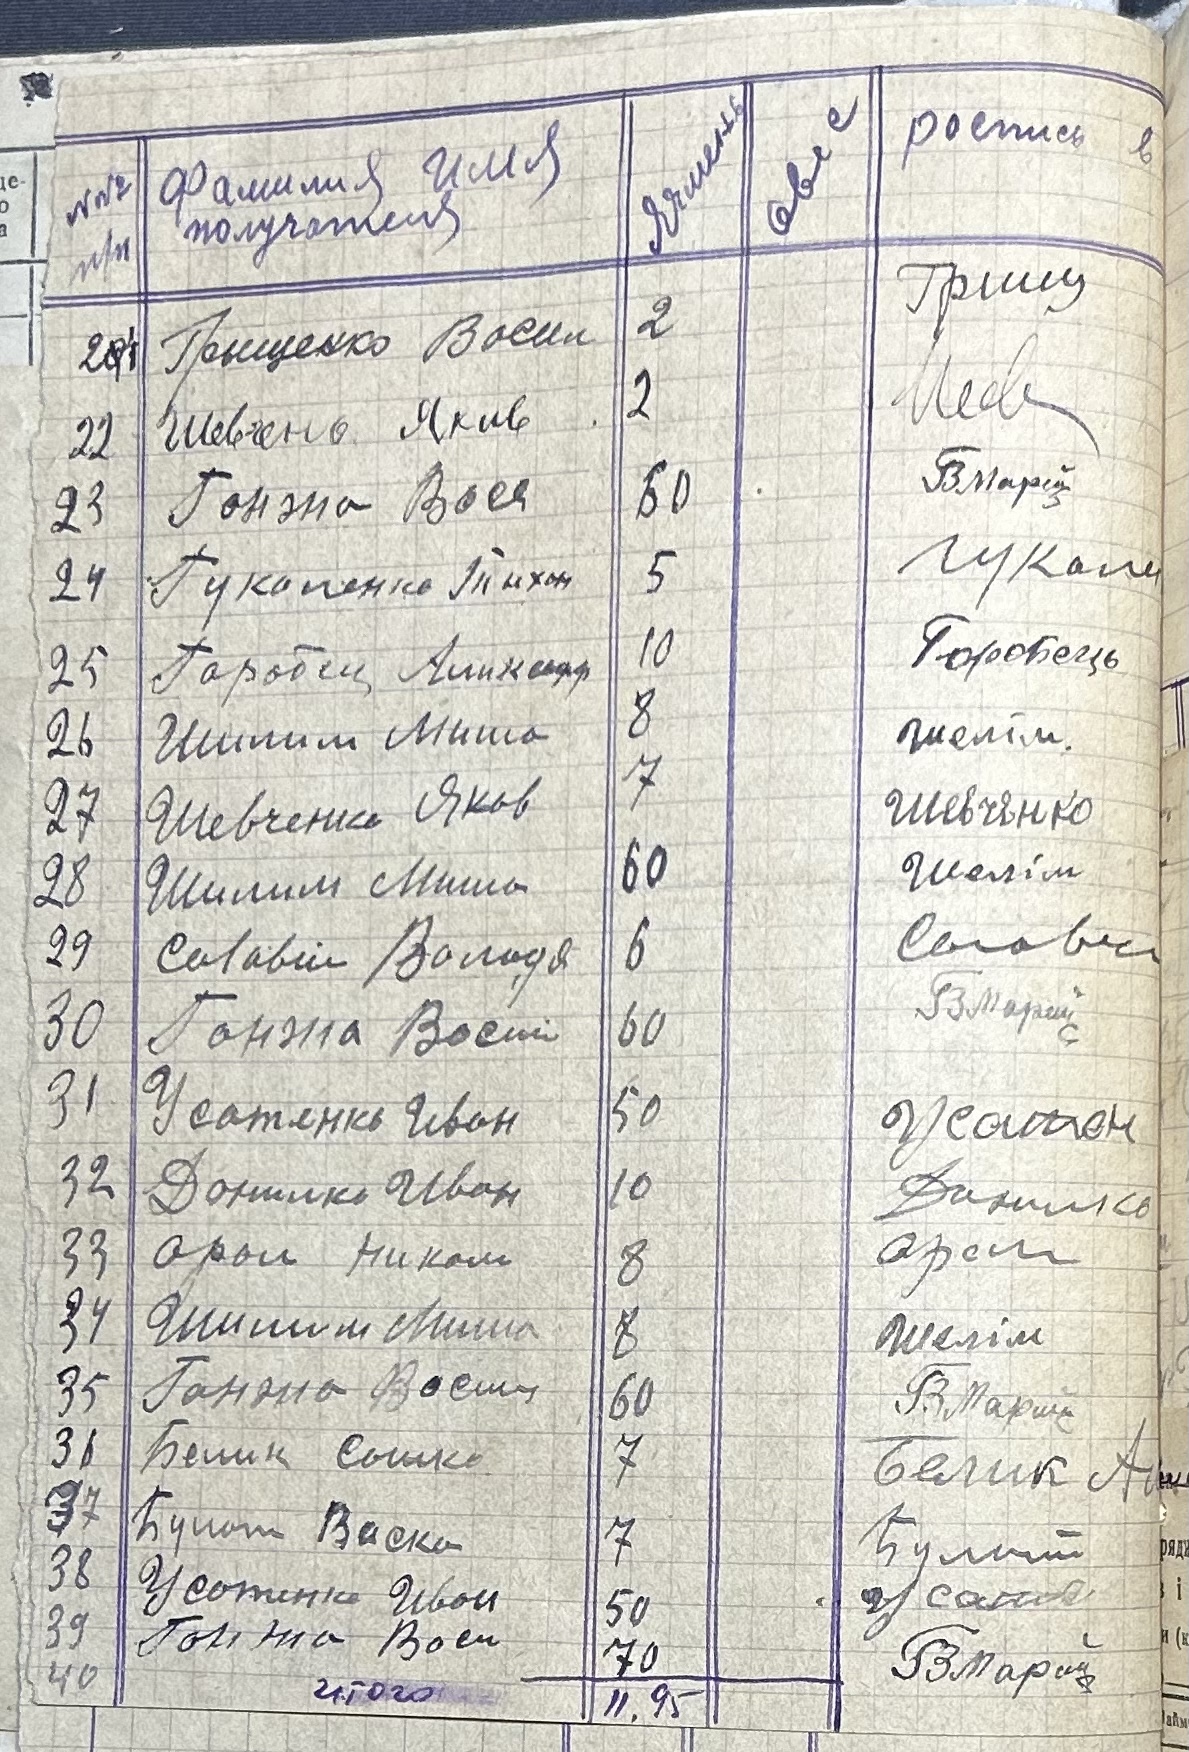 №№ п/п Фамилия Имя получателя Ячмень овес роспись в
21 Грыщенко Васил 2 Грищ
22 Шевчено Яков 2 Шев
23 Ганжа Вася 60 ГВМарій
24 Гукаленко Тихон 5 Гукален
25 Горобец Александр 10 Горобець
26 Шилим Миша 8 шелім.
27 Шевченко Яков 7 Шевченко
28 Шилим Миша 60 Шелім
29 Солавии Валодя 6 Солавей
30 Ганжа Васил 60 ГВМарій
31 Усатенко Иван 50 Усатен
32 Данилко Иван 10 Данилко
33 Орел Никол 8 Орел
34 Шилим Миша 8 Шелім
35 Ганжа Васил 60 ГВМарій
36 Белик Сашко 7 Белик
37 Булат Васка 7 Булат
38 Усатенко Иван 50 Усате
39 Ганжа Васи 70 ГВМарій
40 итого 11.95